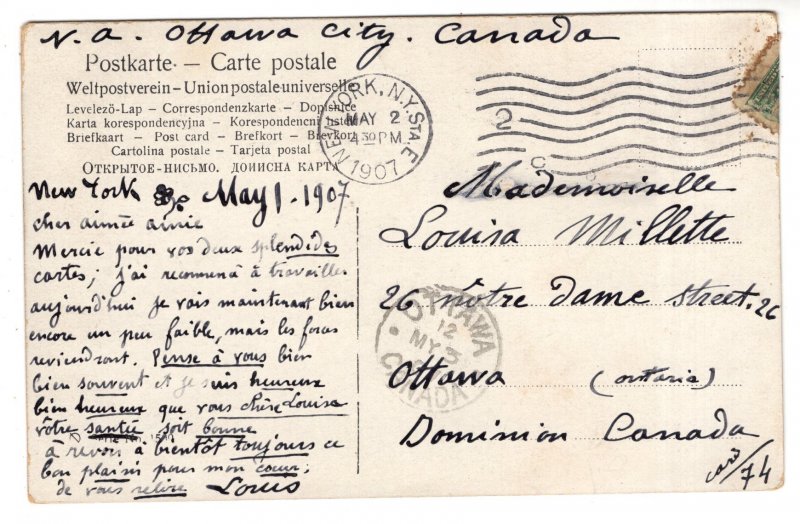 N.A. Ottawa City. Canada
Postkarte. — Carte postale
Weltpostverein – Union postale universelle
Levelező-Lap – Correspondenzkarte – Dopisnice
Karta korespondencyjna – Korespondencni listek
Briefkaart – Post card – Brefkort – Brevkort
Cartolina postale – Tarjeta postal
ОТКРЫТОЕ-НИСЬМО. ДОИИСНА КАРТА
NEW YORK, N.Y. STA. E
MAY 2
4 30 PM
1907
2
New York May 1. 1907
cher aimée amie
Mercie pour vos deux splendides
cartes; j'ai recommencé à travailler
aujourd'hui je vais maintenant bien
encore un peu faible, mais les forces
reviendront. Pense à vous bien
bien souvent et je suis heureux
bien heureux que vous chère Louisa
vôtre santée soit bonne
à revoir à bientôt toujours ce
bon plaisir pour mon cœur;
de vous relire Louis
Mademoiselle
Louisa Millette
26 nôtre Dame street. 26
OTTAWA
12
MY 3
CANADA
Ottawa (ontaria)
Dominion Canada
card/74